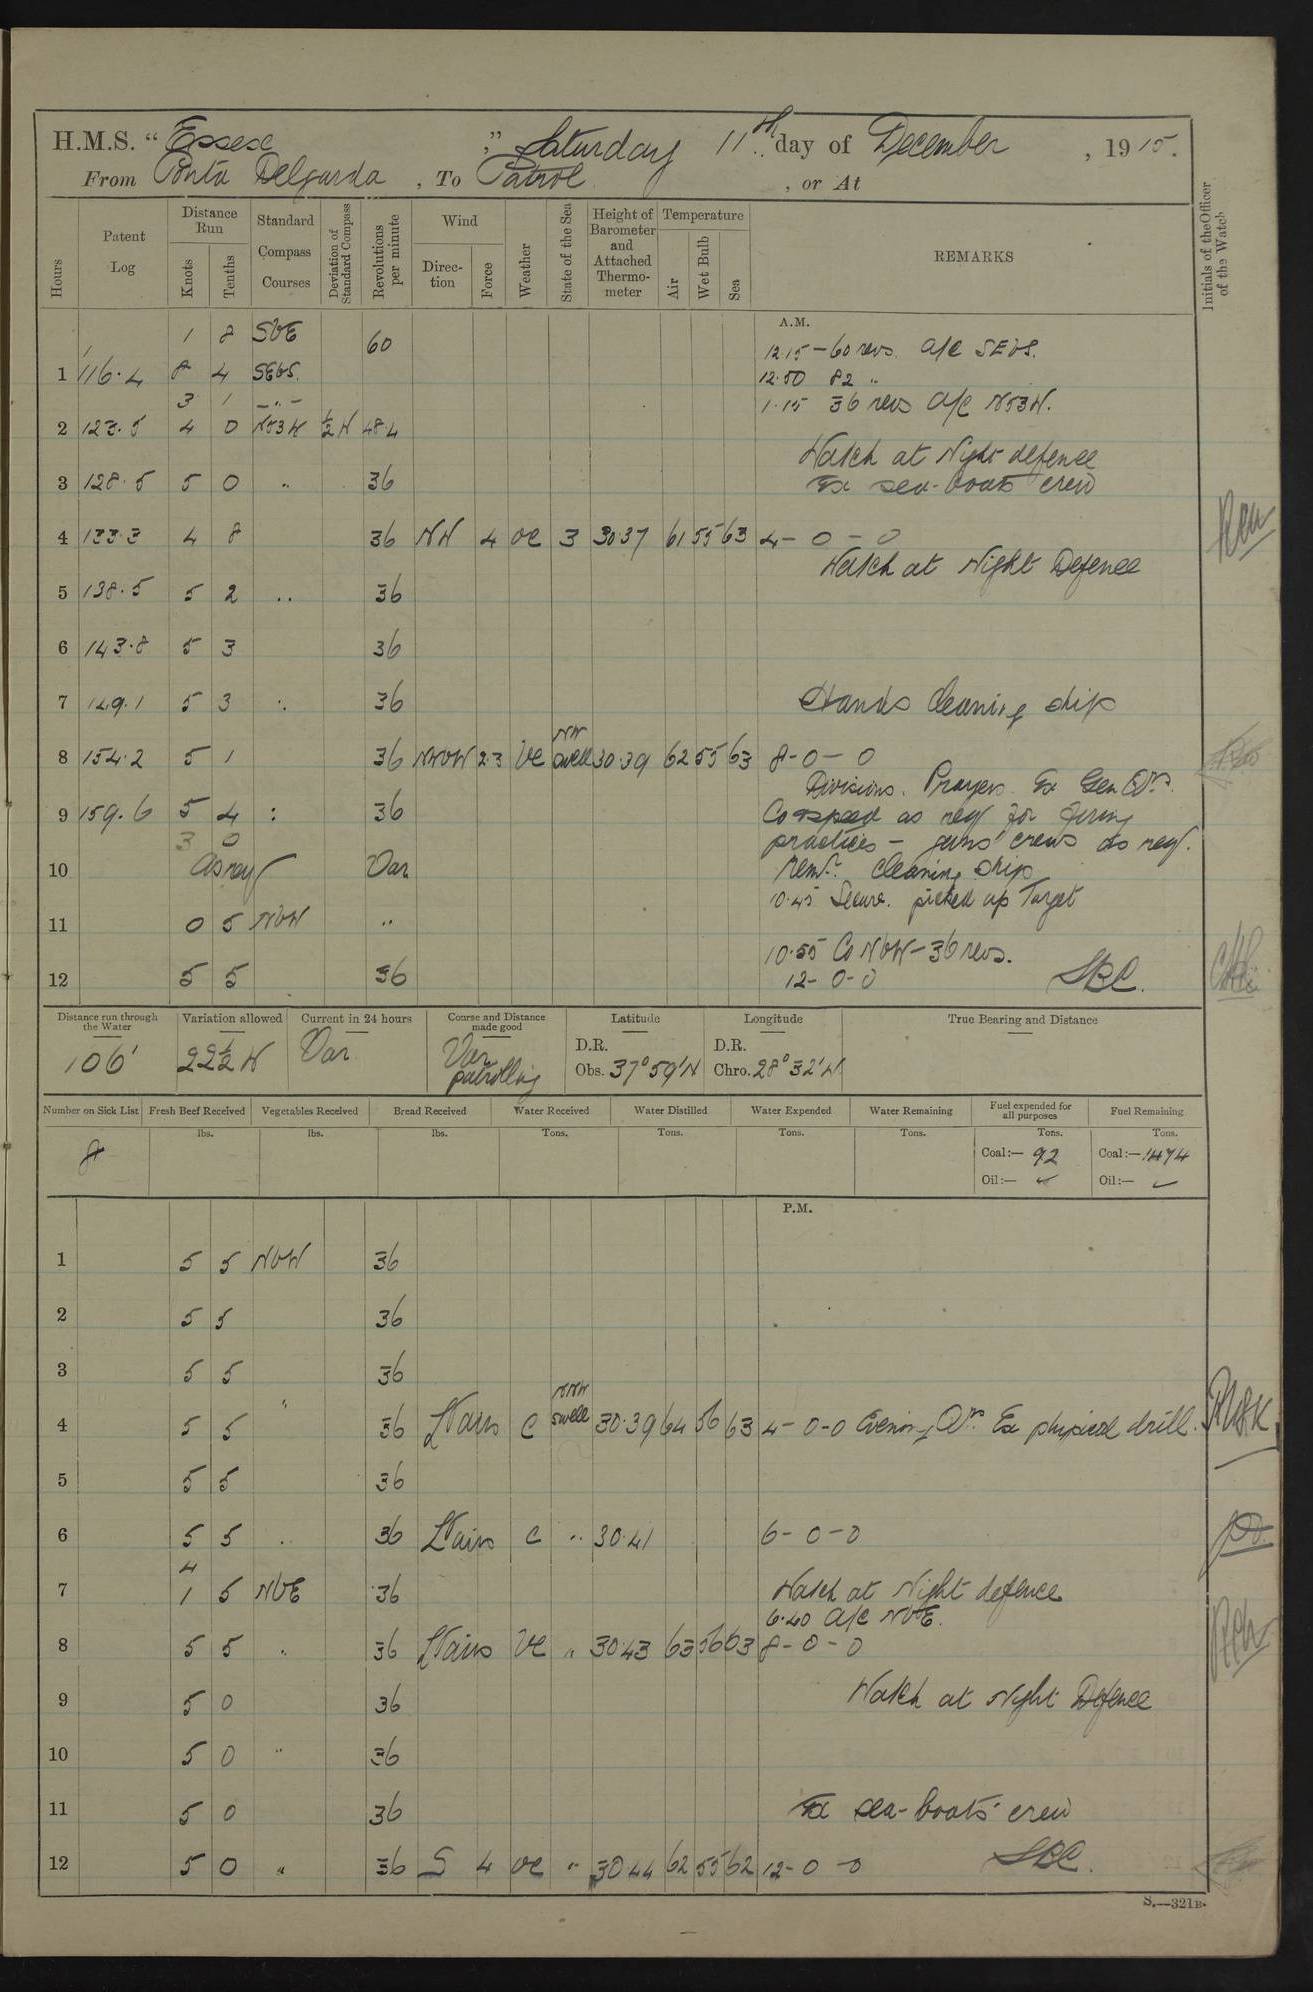 H.M.S. “Essex”, Saturday 11th day of December, 1915.
From Ponta Delgarda, To Patrol, or At
Hours Patent Log Distance Run Knots Tenths Standard Compass Courses Deviation of Standard Compass Revolutions per minute Wind Direction Force Weather State of the Sea Height of Barometer and Attached Thermometer Temperature Air Wet Bulb Sea REMARKS Initials of the Officer of the Watch
A.M.
1 8 SbE 60
12.15 – 60 revs. a/c SEbS.
1 116.4 8 4 SEbS. 12.50 82 "
3 1 – " – 1.15 36 revs a/c N53W.
2 123.5 4 0 N53W ½W 48.4
Watch at Night defence
3 128.5 5 0 " 36 Ex sea-boats crew
4 133.3 4 8 36 NW 4 oc 3 30.37 61 55 63 4 – 0 – 0
Watch at Night Defence
5 138.5 5 2 .. 36
6 143.8 5 3 36
7 149.1 5 3 .. 36 Hands cleaning ship
NW
8 154.2 5 1 36 NWbW 2.3 bc swell 30.39 62 55 63 8 – 0 – 0
Divisions. Prayers. Ex Gen Qrs.
9 159.6 5 4 : 36 Co & speed as req for firing
3 0 practices – guns' crews as req.
10 As req Var Remdr. cleaning ship
10.45 Secure. picked up Target
11 0 5 NbW "
10.55 Co NbW – 36 revs.
12 5 5 36 12 – 0 – 0 SBC.
Distance run through the Water Variation allowed Current in 24 hours Course and Distance made good Latitude Longitude True Bearing and Distance
106' 22½ W Var Var patrolling D.R. D.R.
Obs. 37° 59' N Chro. 28° 32' W
Number on Sick List Fresh Beef Received Vegetables Received Bread Received Water Received Water Distilled Water Expended Water Remaining Fuel expended for all purposes Fuel Remaining
lbs. lbs. lbs. Tons. Tons. Tons. Tons. Tons. Tons.
8 Coal:— 92 Coal:— 1474
Oil:— ✓ Oil:— ✓
P.M.
1 5 5 NbW 36
2 5 5 36
3 5 5 36
NNW
4 5 5 " 36 Lt airs c swell 30.39 64 56 63 4 – 0 – 0 Evening Qrs. Ex physical drill.
5 5 5 36
6 5 5 . 36 Lt airs c .. 30.41 6 – 0 – 0
4
7 1 5 NbE 36 Watch at Night defence
6.40 a/c NbE.
8 5 5 .. 36 Lt airs bc " 30.43 63 56 63 8 – 0 – 0
9 5 0 36 Watch at Night Defence
10 5 0 " 36
11 5 0 36 Ex sea-boats' crew
12 5 0 " 36 S 4 oc " 30.44 62 55 62 12 – 0 – 0 SBC.
S.—321B.